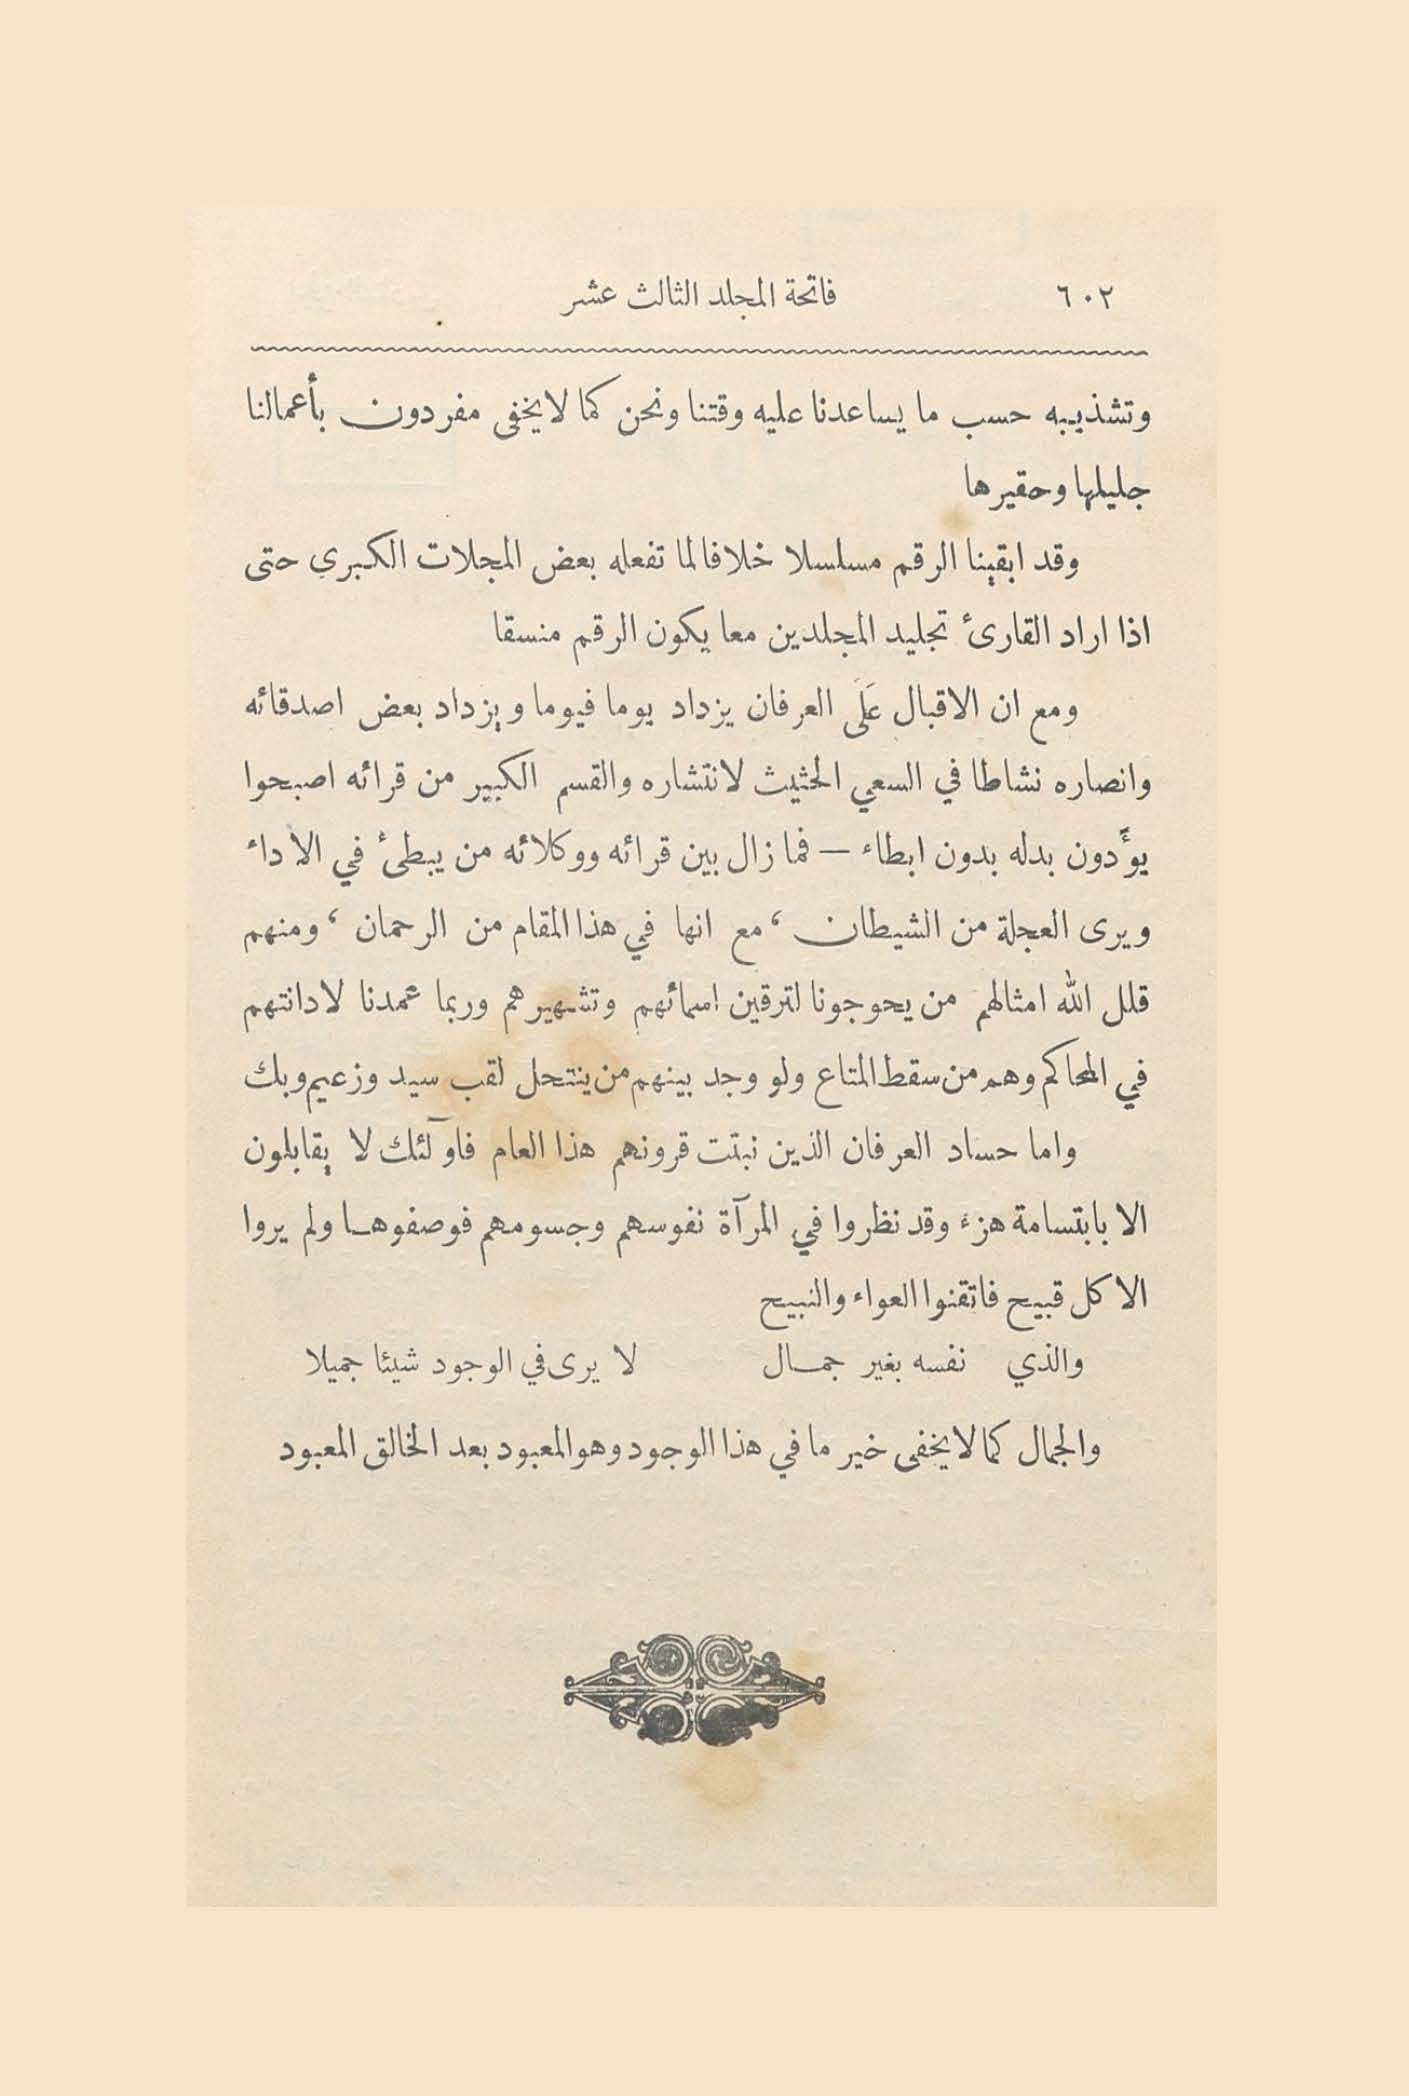 ٦٠٢ فاتحة المجلد الثالث عشر
وتشذيبه حسب ما يساعدنا عليه وقتنا ونحن كما لا يخفى مفردون بأعمالنا
جليلها وحقيرها
وقد ابقينا الرقم مسلسلا خلافا لما تفعله بعض المجلات الكبرى حتى
اذا اراد القارئ تجليد المجلدين معا يكون الرقم منسقا
ومع ان الاقبال عَلَى العرفان يزداد يوما فيوما ويزداد بعض اصدقائه
وانصاره نشاطا في السعي الحثيث لانتشاره والقسم الكبير من قرائه اصبحوا
يؤَدون بدله بدون ابطاء — فما زال بين قرائه ووكلائه من يبطئ في الاداء
ويرى العجلة من الشيطان ، مع انها في هذا المقام من الرحمان ، ومنهم
قلل الله امثالهم من يحوجونا لترقين اسمائهم وتشهيرهم وربما عمدنا لادانتهم
في المحاكم وهم من سقط المتاع ولو وجد بينهم من ينتحل لقب سيد وزعيم وبك
واما حساد العرفان الذين نبتت قرونهم هذا العام فاولئك لا يقابلون
الا بابتسامة هزء وقد نظروا في المرآة نفوسهم وجسومهم فوصفوها ولم يروا
الا كل قبيح فاتقنوا العواء والنبيح
والذي نفسه بغير جمال لا يرى في الوجود شيئا جميلا
والجمال كما لا يخفى خير ما في هذا الوجود وهو المعبود بعد الخالق المعبود